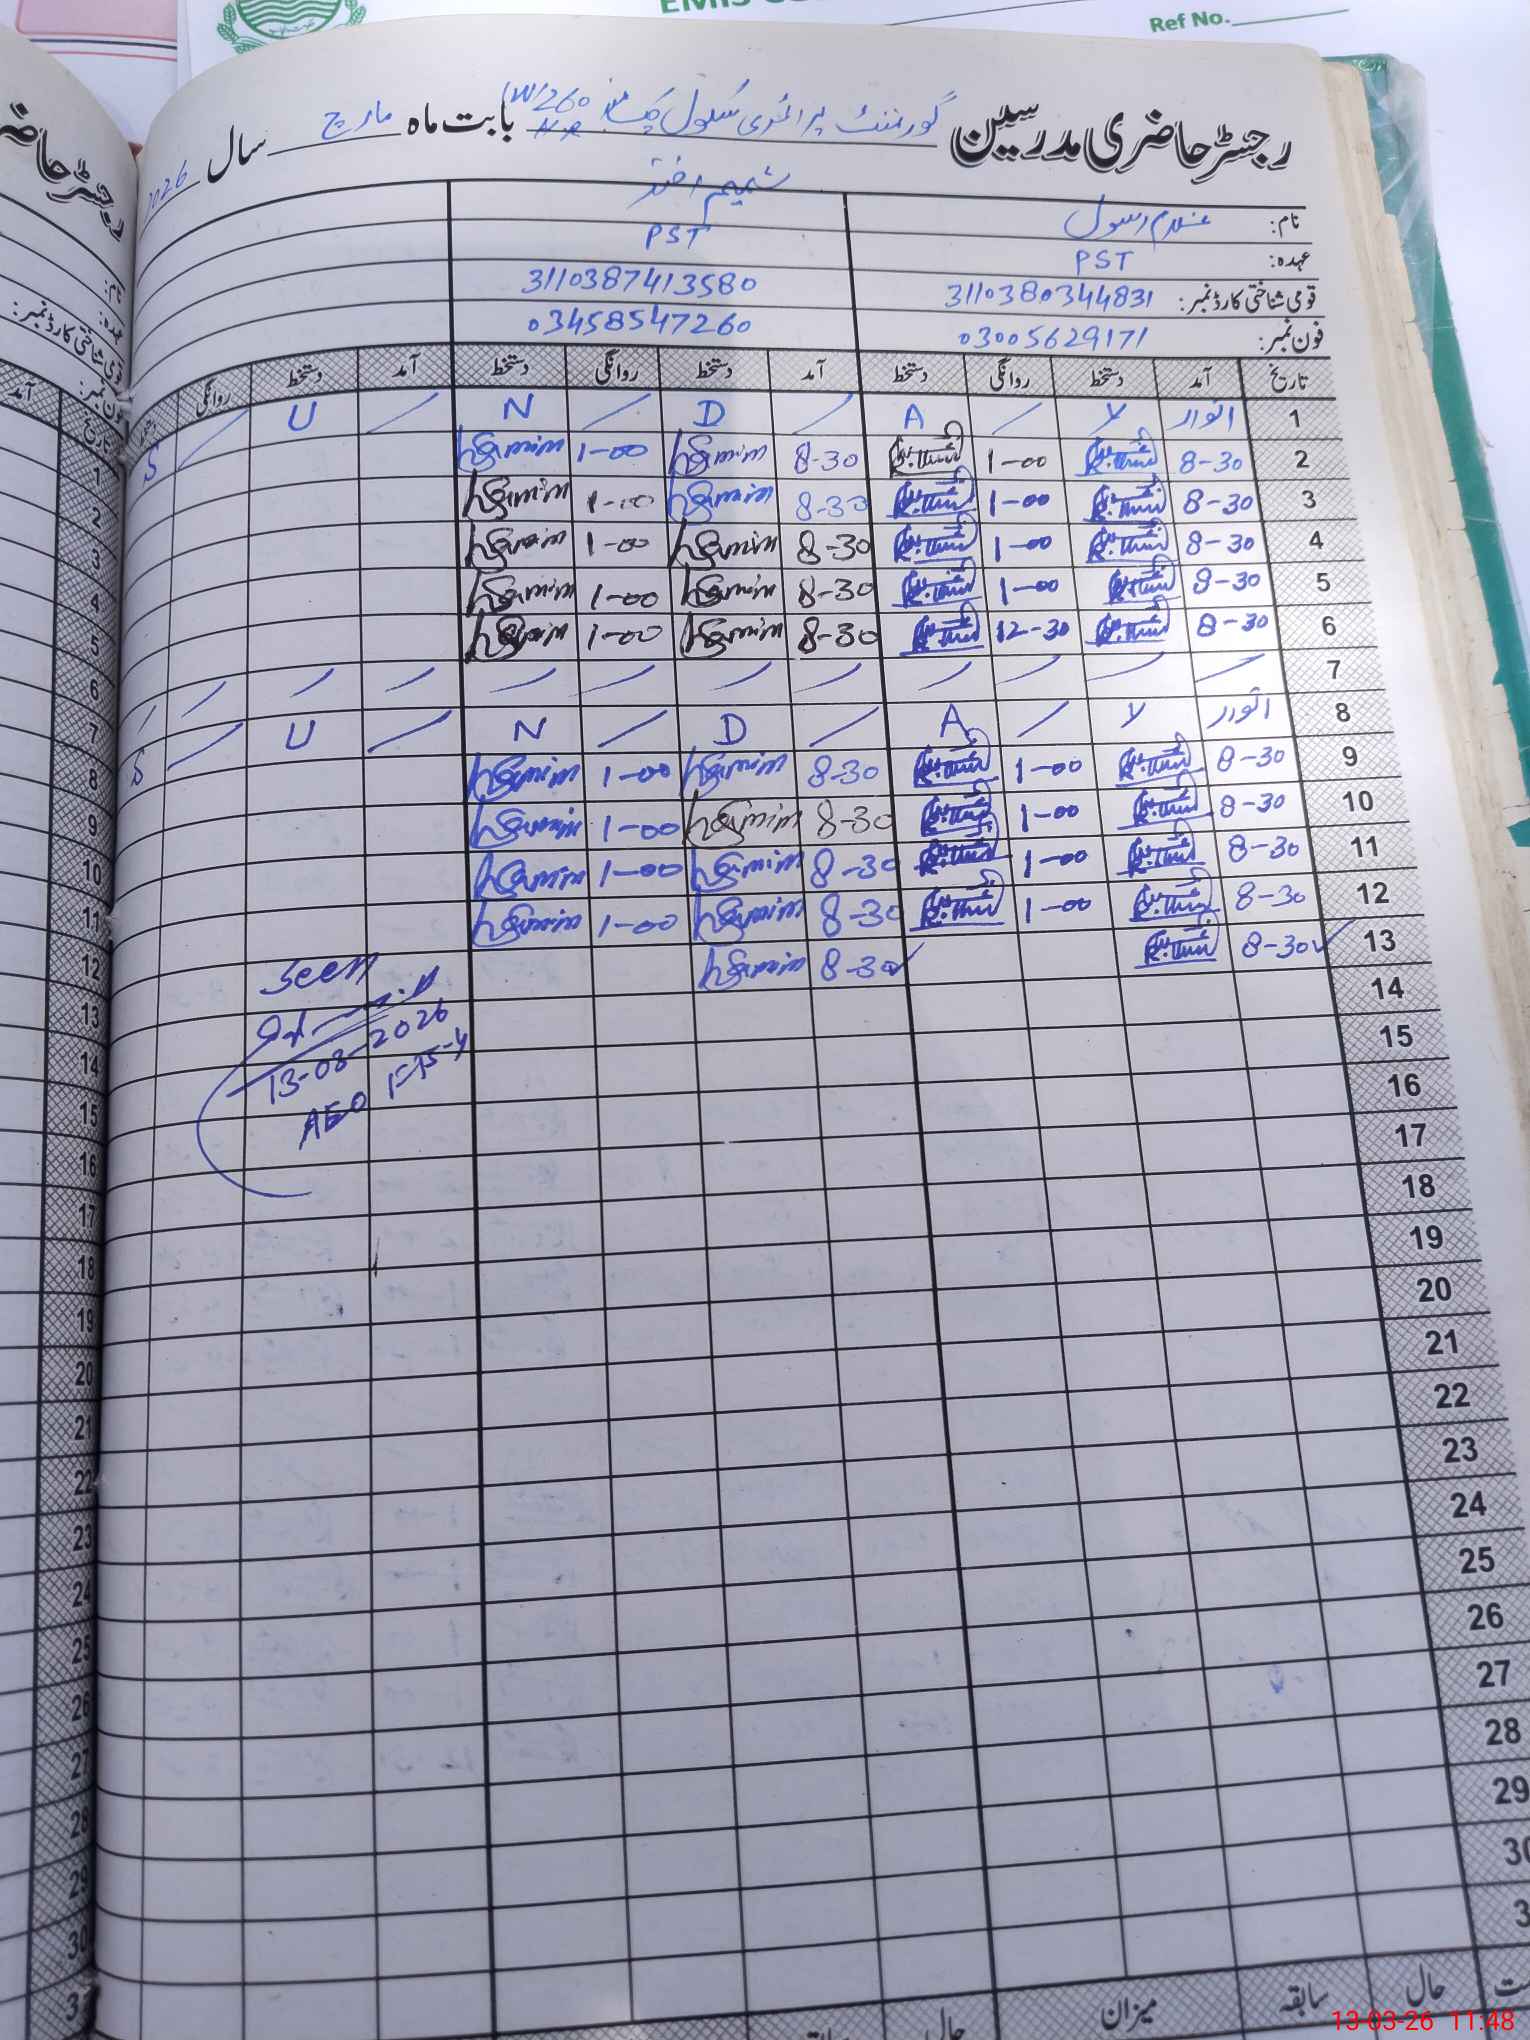 Ref No.
رجسٹر حاضری مدرسین گورنمنٹ پرائمری سکول چک نمبر 260/W بابت ماہ مارچ سال 2026
نام: غلام رسول شمیم اختر
عہدہ: PST PST
قومی شناختی کارڈ نمبر: 3110380344831 3110387413580
فون نمبر: 03005629171 03458547260
تاریخ آمد دستخط روانگی دستخط آمد دستخط روانگی دستخط آمد دستخط روانگی
1 اتوار Y / A / D / N / U / S
2 8-30 1-00 8-30 1-00
3 8-30 1-00 8-30 1-00
4 8-30 1-00 8-30 1-00
5 8-30 1-00 8-30 1-00
6 8-30 12-30 8-30 1-00
7 / / / / / / / / / / / /
8 اتوار Y / A / D / N / U / S
9 8-30 1-00 8-30 1-00
10 8-30 1-00 8-30 1-00
11 8-30 1-00 8-30 1-00
12 8-30 1-00 8-30 1-00
13 8-30 ✓ 8-30 ✓
14
15
16
17
18
19
20
21
22
23
24
25
26
27
28
29
30
3
Seen
13-03-2026
AEO
میزان سابقہ حال
حال
رجسٹر حاضر
نام:
عہدہ:
قومی شناختی کارڈ نمبر:
فون نمبر:
تاریخ آمد
1
2
3
4
5
6
7
8
9
10
11
12
13
14
15
16
17
18
19
20
21
22
23
24
25
26
27
28
29
30
31
13-03-26 11:48